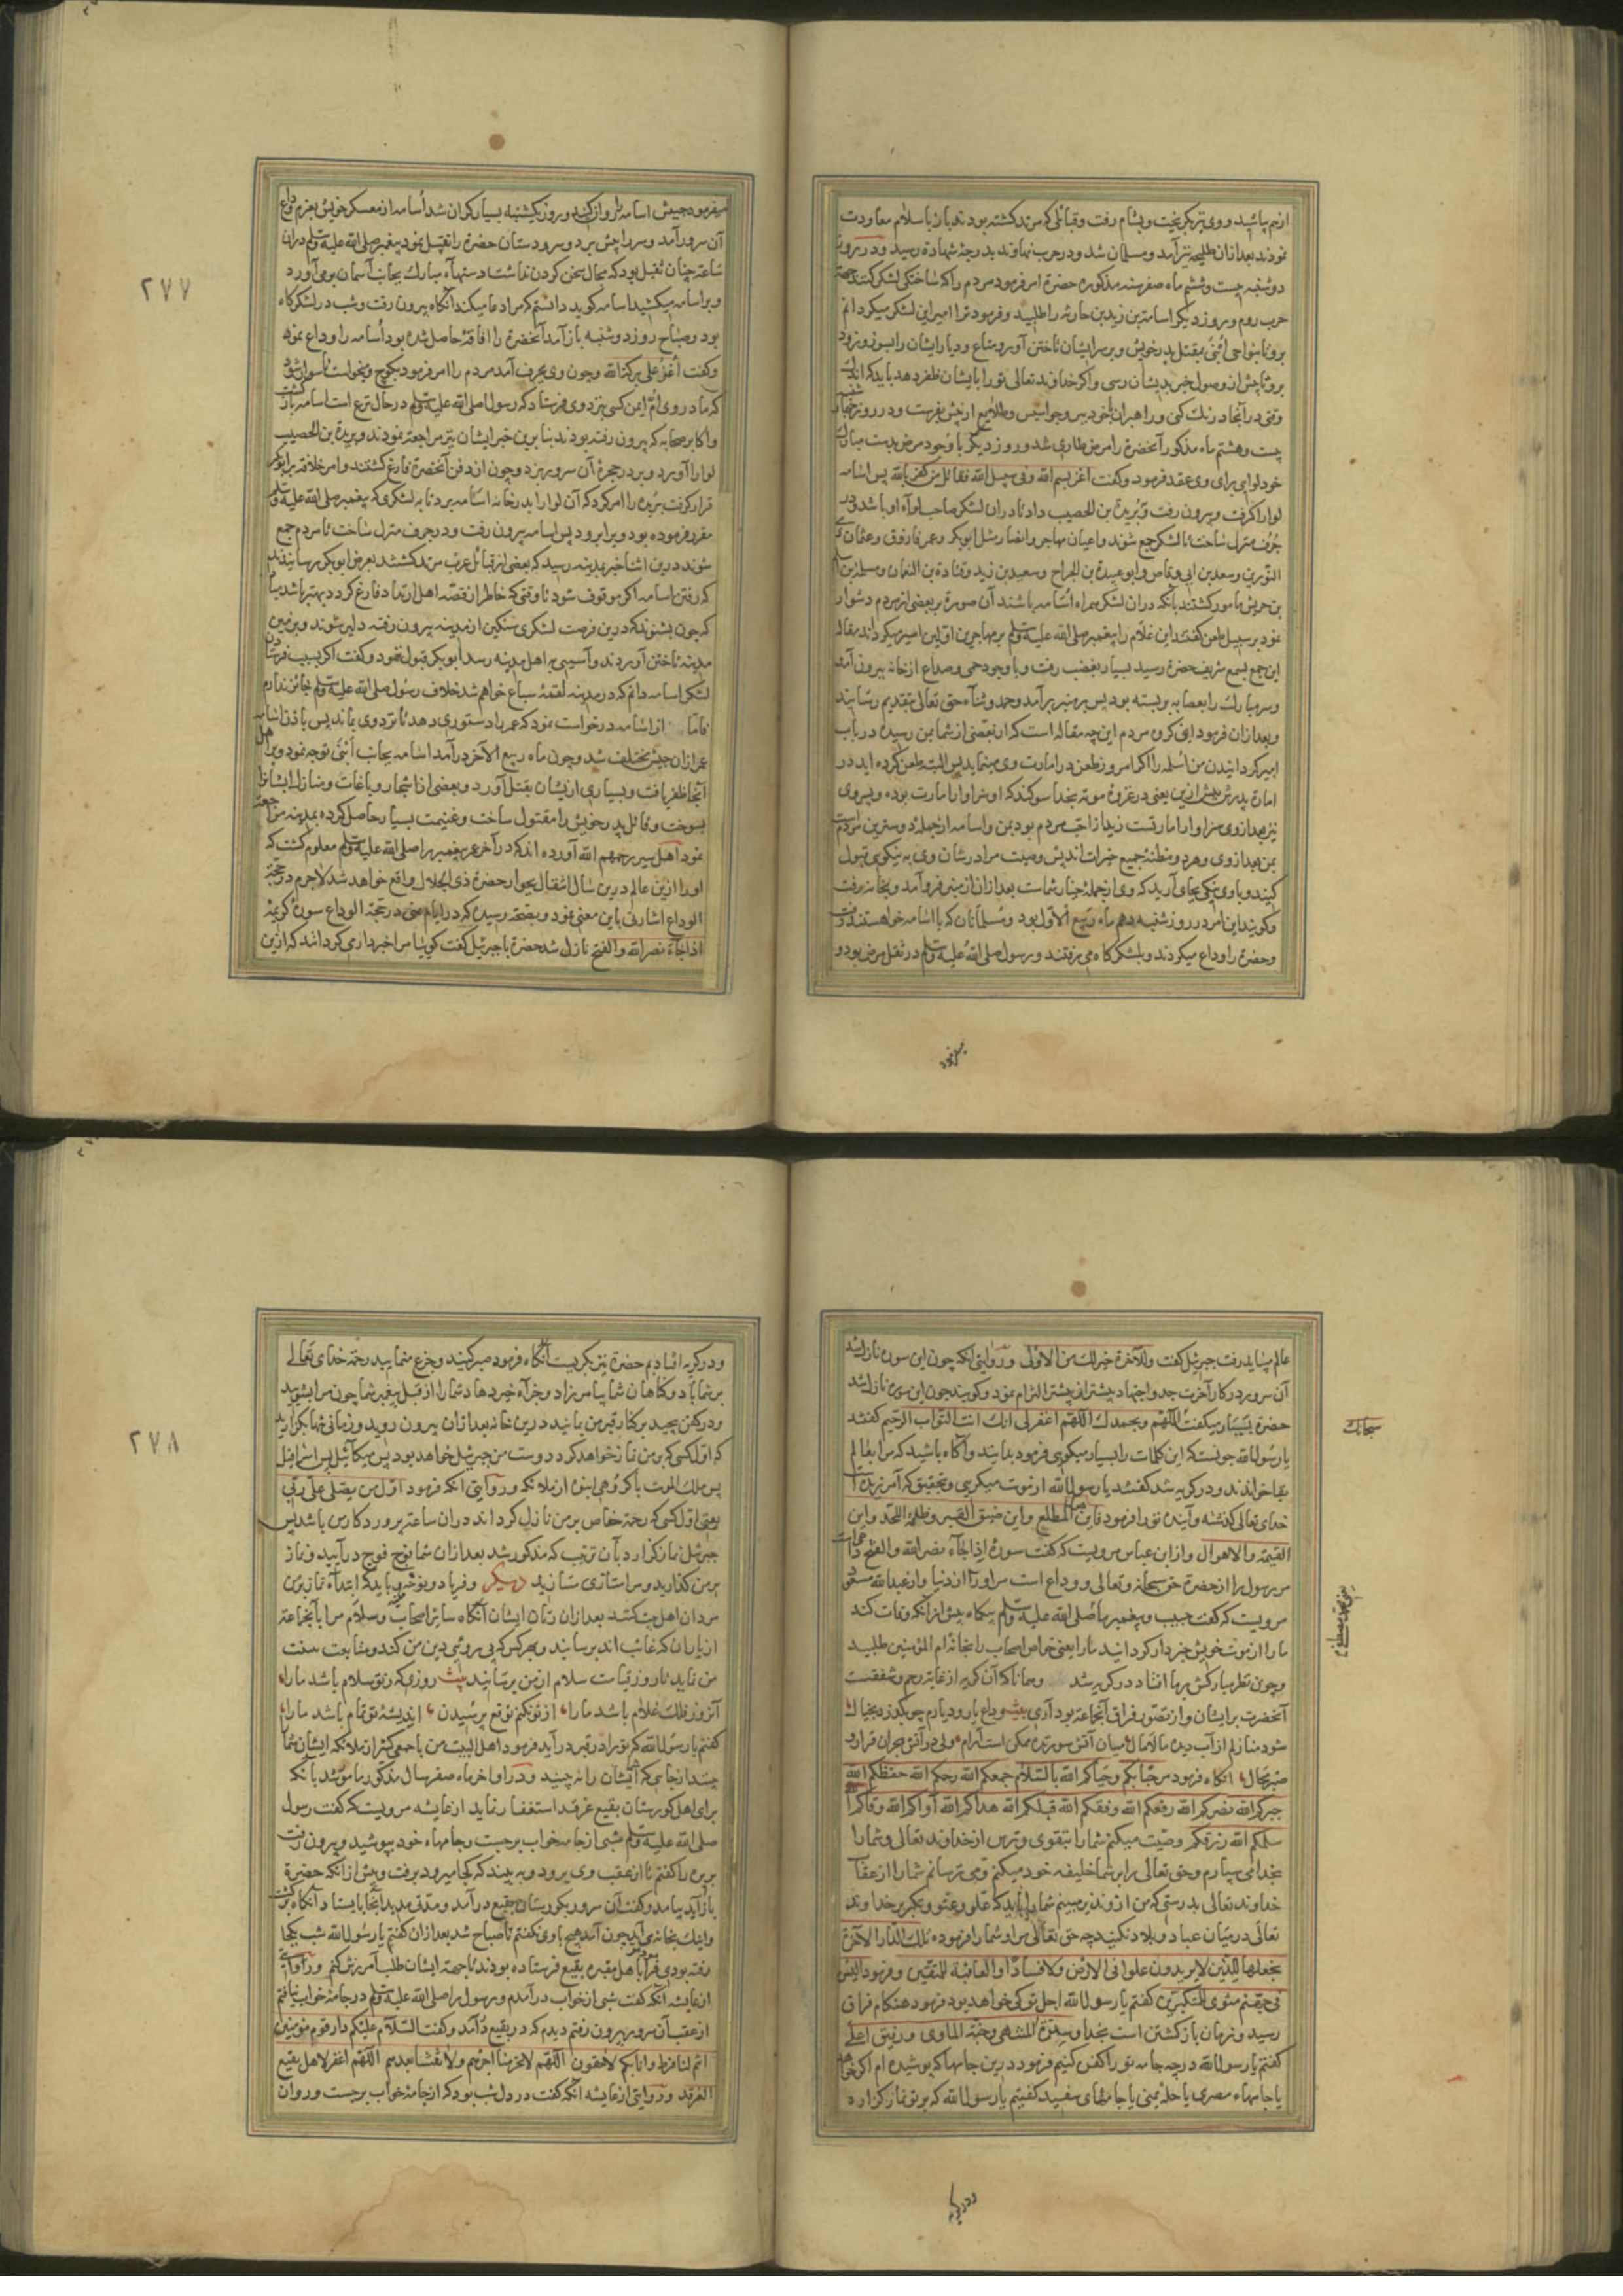 ازهم پاشید و وی نیز بگریخت و بشام رفت و قبائلی که مرتد کشته بودند باز باسلام معاودت
نمودند بعد ازان طلیحه نیز آمد و مسلمان شد و در حرب نهاوند بدرجهٔ شهادة رسید و در روز
دوشنبه بیست و ششم ماه صفر سنه مذکوره حضرة امر فرمود مردم را که ساختکی لشکر کنند بجهة
حرب روم و روز دیکر اسامة بن زید بن حارثه را طلبید و فرمود ترا امیر این لشکر میکردانم
برو تا بنواحی اُبنی بمقتل پدر خویش و بر سر ایشان تاختن آور و متاع و دیار ایشان را بسوز و زود
برو تا پیش از وصول خبر بدیشان رسی و اکر خداوند تعالی تو را بایشان ظفر دهد باید که اندک
وقتی در آنجا درنک کنی و راهبران با خود ببر و جواسیس و طلایع از پیش بفرست و در روز چهارشنبه
بیست و هشتم ماه مذکور آنحضرة را مرض طاری شد و روز دیکر با وجود مرض بدست مبارک
خود لوایی برای وی عقد فرمود و کفت اغز بسم الله و فی سبیل الله فقاتل من کفر بالله پس اسامه
لوا را کرفت و بیرون رفت و بُریدة بن الحصیب داد تا دران لشکر صاحب لوآء او باشد و در
جُرف منزل ساخت تا لشکر جمع شوند و اعیان مهاجر و انصار مثل ابوبکر و عمر فاروق و عثمان ذی
النورین و سعد بن ابی وقاص و ابو عبیدة بن الجراح و سعید بن زید و قتادة بن النعمان و مسلمة بن اسلم
بن حریش مامور کشتند بآنکه دران لشکر همراه اُسامه باشند آن صورة بر بعضی از مردم دشوار
نمود بر سبیل طعن کفتند این غلام را پیغمبر صلی الله علیه وسلم بر مهاجرین اولین امیر میکرداند مقاله
این جمع بسمع شریف حضرة رسید بسیار بغضب رفت و با وجود حمی و صداع از خانه بیرون آمد
و سر مبارک را بعصابه بر بسته بود پس بر منبر بر آمد و حمد و ثنآء حق تعالی بتقدیم رسانید
و بعد ازان فرمود ای کروه مردم این چه مقاله است که از بعضی از شما بمن رسیده در باب
امیر کردانیدن من اُسامه را اکر امروز طعن در امارت وی مینمایید پس البته طعن کرده اید در
امارة پدرش پیش ازین یعنی در غزوهٔ موته بخدا سوکند که او سزاوار امارت بوده و پسر وی
نیز بعد از وی سزاوار امارتست زید از احبّ مردم بود بمن و اسامه از جملهٔ دوسترین مردم است
بمن بعد از وی و هر دو مظنهٔ جمیع خیرات اند پس وصیت مرا در شان وی به نیکویی قبول
کنید و با وی نیکی بجای آرید که وی از جملهٔ خیار شماست بعد ازان از منبر فرو آمد و بخانه رفت
و کویند این امر در روز شنبه دهم ماه ربیع الاول بود و مسلمانان که با اسامه خواستند رفت
و حضرة را وداع میکردند و بلشکرکاه می رفتند و رسول صلی الله علیه وسلم در ثقل مرض بود و
میفرمود جیش اسامه را روان کنید و روز یکشنبه بسیار کران شد اُسامه از معسکر خویش بعزم وداع
آن سرور آمد و سر را پیش برد و سر و دستان حضرة را تقبیل نمود پیغمبر صلی الله علیه وسلم دران
ساعة چنان ثقیل بود که مجال سخن کردن نداشت دستهآء مبارک بجانب آسمان بر می آورد
و بر اسامه میکشید اسامه کوید دانستم که مرا دعا میکند آنکاه بیرون رفت و شب در لشکرکاه
بود و صباح روز دوشنبه باز آمد آنحضرة را افاقهٔ حاصل شده بود اُسامه را وداع نمود
و کفت اُغزُ علی برکة الله و چون وی بجرف آمد مردم را امر فرمود بکوچ و میخواست تا سوار شود
که مادر وی امّ ایمن کسی نزد وی فرستاد که رسول صلی الله علیه وسلم در حال نزع است اسامه باز کشت
و اکابر صحابه که بیرون رفته بودند بنا برین خبر ایشان نیز مراجعة نمودند و بریدة بن الحصیب
لوا را آورد و بر در حجرهٔ آن سرور بزد و چون از دفن آنحضرة فارغ کشتند و امر خلافة بر ابوبکر
قرار کرفت بُریده را امر کرد که آن لوا را بدر خانه اُسامه برد تا به لشکری که پیغمبر صلی الله علیه وسلم
مقرر فرموده بود ویرا برود پس اسامه بیرون رفت و در جرف منزل ساخت تا مردم جمع
شوند درین اثنا خبر بمدینه رسید که بعضی از قبائل عرب مرتد کشتند بعرض ابوبکر رسانیدند
که رفتن اسامه اکر موقوف شود تا وقتی که خاطر از قصّه اهل ارتداد فارغ کردد بهتر باشد مبادا
که چون بشنوند که درین فرصت لشکری سنکین از مدینه بیرون رفته دلیر شوند و بر زمین
مدینه تاختن آوردند و آسیبی به اهل مدینه رسد ابوبکر قبول ننمود و کفت اکر بسبب فرستادن
لشکر اسامه دانم که در مدینه لقمهٔ سباع خواهم شد خلاف رسول صلی الله علیه وسلم جائز ندارم
فامّا از اسامه درخواست نمود که عمر را دستوری دهد تا نزد وی بماند پس باذن اسامه
عمر ازان جیش تخلف شد و چون ماه ربیع الآخر در آمد اسامه بجانب اُبنی توجه نمود و بر اهل
آنجا ظفر یافت و بسیاری از ایشان بقتل آورد و بعضی از اشجار و باغات و منازل ایشان را
بسوخت و قاتل پدر خویش را مقتول ساخت و غنیمت بسیار حاصل کرده بمدینه مراجعة
نمود اهل سیر رحمهم الله آورده اند که در آخر عمر پیغمبر را صلی الله علیه وسلم معلوم کشت که
او را ازین عالم درین سال انتقال بجوار حضرة ذی الجلال واقع خواهد شد لاجرم در حجّة
الوداع اشارتی باین معنی نمود و بصحّة رسیده که در ایام منی در حجة الوداع سورهٔ کریمهٔ
اذا جآء نصر الله والفتح نازل شد حضرة با جبرئیل کفت کوییا مرا خبر داری کردانند که ازین
بیفرمود
۲۷۷
عالم میباید رفت جبرئیل کفت وللآخرة خیر لک من الاولی و روایتی آنکه چون این سوره نازل شد
آن سرور در کار آخرت جد و اجتهاد بیشتر از پیشتر التزام نمود و کویند چون این سوره نازل شد
حضرة بسیار میکفت اللّهم وبحمدک اللّهم اغفر لی انک انت التواب الرحیم کفتند
یا رسول الله چونست که این کلمات را بسیار میکویی فرمود بدانید و آکاه باشید که مرا بعالم
بقا خواندند و در کریه شد کفتند یا رسول الله از موت میکریی و بتحقیق که آمرزیده است
خدای تعالی کذشته و آینده تو را فرمود فاین هول المطلع و این ضیق القبر و ظلمة اللحد و این
القیمة والاهوال و از ابن عباس مرویست که کفت سورهٔ اذا جآء نصر الله والفتح
مر رسول را از حضرة حق سبحانه و تعالی و وداع است مر او را از دنیا و از عبد الله مسعود
مرویست که کفت حبیب و پیغمبر ما صلی الله علیه وسلم بیکماه پیش از آنکه وفات کند
ما را از موت خویش خبردار کردانید ما را یعنی خواص اصحاب را بخانهٔ ام المؤمنین طلبید
و چون نظر مبارکش بر ما افتاد در کریه شد و همانا که آن کریه از غایة رحم و شفقت
آنحضرت بر ایشان و از تصوّر فراق آنجماعة بود آری بیت وداع یار و دیارم چو بکذرد بخیال
شود منازلم از آب دیده مالامال میان آتش سوزنده ممکن است آرام ولی در آتش هجران قرار و
صبر محال آنکاه فرمود مرحبا بکم و حیّاکم الله بالسّلام جمعکم الله رحمکم الله حفظکم الله
جبرکم الله نصرکم الله رفعکم الله وفقکم الله قبلکم الله هداکم الله آواکم الله وقاکم الله
سلمکم الله رزقکم وصیّت میکنم شما را بتقوی و ترس از خداوند تعالی و شما را
بخدا می سپارم و حق تعالی را بر شما خلیفه خود میکنم و می ترسانم شما را از عقاب
خداوند تعالی بدرستی که من از وی نذیر مبینم شما را باید که علو و عتو و تکبر بر خداوند
تعالی در میان عباد و بلاد نکنید چه حق تعالی مرا و شما را فرموده تلک الدّار الآخرة
نجعلها للّذین لا یریدون علوا فی الارض ولا فسادًا والعاقبة للمتقین و فرمود الیس
فی جهنم مثوی للمتکبرین کفتم یا رسول الله اجل تو کی خواهد بود فرمود هنکام فراق
رسید و زمان بازکشتن است بخدا و سدرة المنتهی و جنّة الماوی و رفیق اعلی
کفتم یا رسول الله در چه جامه تو را کفن کنیم فرمود درین جامها که پوشیده ام اکر خواهید
یا جامهاء مصری یا حلّهٔ یمنی یا جامهای سفید کفتیم یا رسول الله که بر تو نماز کزارد
سبحانک
و در کریه
و در کریه افتادیم حضرة نیز بکریست آنکاه فرمود صبر کنید و جزع منمایید رحمة خدای تعالی
بر شما باد و کناهان شما بیامرزاد و جزآء خیر دهاد شما را از قبل پیغمبر شما چون مرا بشویید
و در کفن پیچید بر کنار قبر من بمانید درین خانه بعد ازان بیرون روید و زمانی تنها بکزارید
که اوّل کسی که بر من نماز خواهد کرد دوست من جبرئیل خواهد بود پس میکآئیل پس اسرافیل
پس ملک الموت با کروهی انبوه از ملائکه و روایتی آنکه فرمود اوّل من یصلّی علیّ ربّی
یعنی اوّل کسی که رحمة خاص بر من نازل کرداند دران ساعة پروردکار من باشد پس
جبرئیل نماز کزارد بآن ترتیب که مذکور شد بعد ازان شما فوج فوج در آیید و نماز
بر من کذارید و مرا ستازی مسازید دیکر و فریاد و نوحه و باید که ابتدآء نماز بر من
مردان اهل بیت کنند بعد ازان زنان ایشان آنکاه سایر اصحاب و سلام مرا بآنجماعة
از یاران که غائب اند برسانید و بهر کس که پیروی دین من کند و متابعت سنت
من نماید تا روز قیامت سلام از من برسانید بیت روزی که ز تو سلام باشد ما را
آنروز فلک غلام باشد ما را از تو نکنم توقع پرسیدن اندیشهٔ تو تمام باشد ما را
کفتم یا رسول الله که تو را در قبر در آید فرمود اهل البیت من با جمعی کثیر از ملائکه ایشان شما را
بینند از جایی که شما ایشان را نه بینید و در اواخر ماه صفر سال مذکور مامور شد بآنکه
برای اهل کورستان بقیع غرقد استغفار نماید از عایشه مرویست که کفت رسول
صلی الله علیه وسلم شبی از جامه خواب برجست و جامهاء خود بپوشید و بیرون رفت
بریره را کفتم تا از عقب وی برود و به بیند که بکجا میرود برفت و پیش از آنکه حضرة
باز آید بیامد و کفت آن سرور بکورستان بقیع در آمد و مدتی مدید آنجا بایستاد آنکاه بر کشت
و اینک بخانه می آید چون آمد هیچ با وی نکفتم تا صباح شد بعد ازان کفتم یا رسول الله شب بکجا
رفته بودی فرمود مرا باهل مقبره بقیع فرستاده بودند تا بجهة ایشان طلب آمرزش کنم و روایتی
از عایشه آنکه کفت شبی از خواب در آمدم و رسول را صلی الله علیه وسلم در جامهٔ خواب نیافتم
از عقب آن سرور بیرون رفتم دیدم که در بقیع در آمد و کفت السّلام علیکم دار قوم مومنین
انتم لنا فرط و انا بکم لاحقون اللّهم لا تحرمنا اجرهم ولا تفتنا بعدهم اللّهم اغفر لاهل بقیع
الغرقد و روایتی از عایشه آنکه کفت در دل شب بود که از جامهٔ خواب برجست و روان
۲۷۸